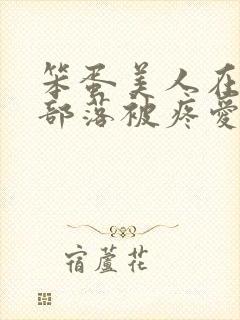 笨蛋美人在
部落被疼愛
宿蘆花